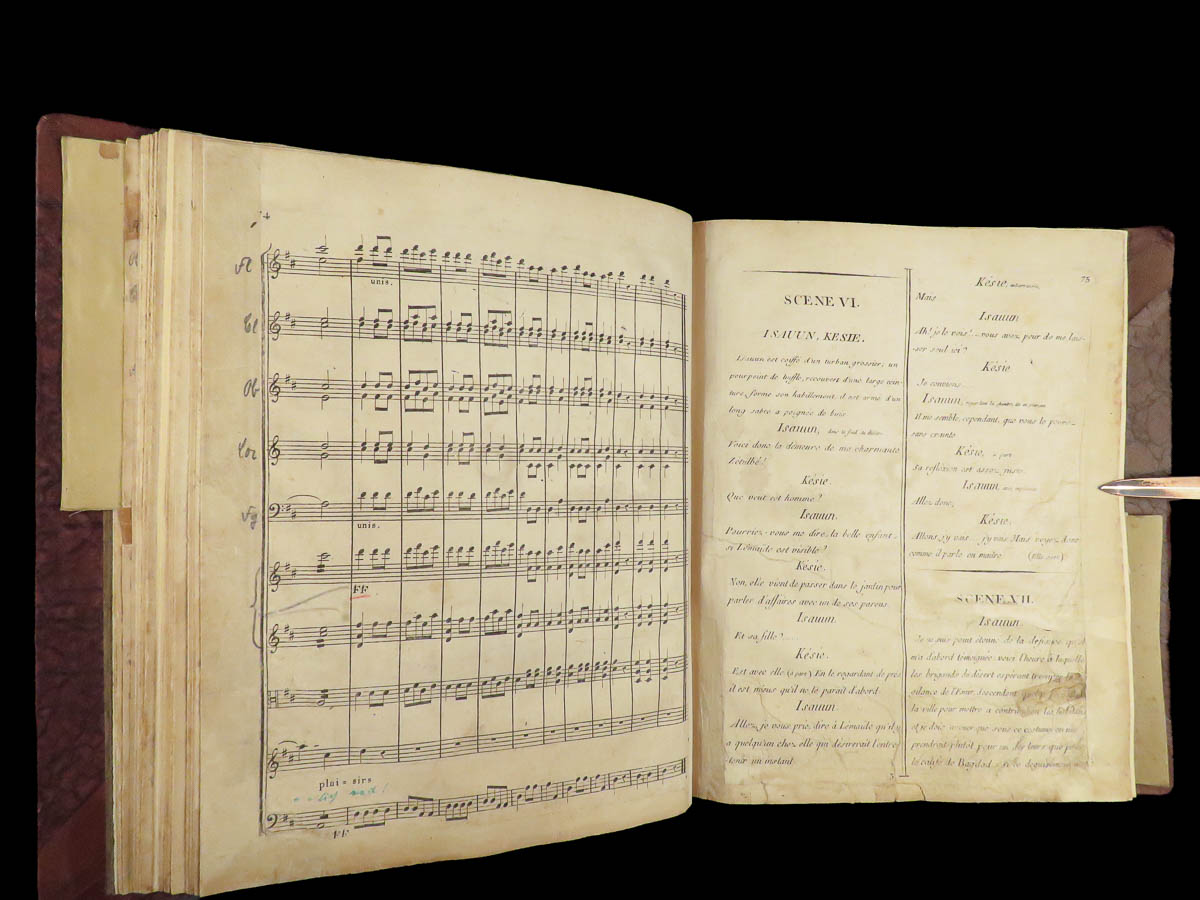 74
Fl
unis.
Cl
Ob
Cor
Fg
unis.
FF
plai = sirs
FF
75
SCENE VI.
ISAUUN, KESIE.
Isauun est coiffé d'un turban grossier; un
pourpoint de buffle, recouvert d'une large cein-
ture, forme son habillement, il est armé d'un
long sabre a poignée de buis
Isauun, dans le fond du théâtre
Voici donc la demeure de ma charmante
Zétulbé!
Késie.
Que veut cet homme?
Isauun.
Pourriez-vous me dire, la belle enfant,
si Lémaide est visible?
Késie.
Non, elle vient de passer dans le jardin pour
parler d'affaires avec un de ses parens.
Isauun.
Et sa fille?......
Késie.
Est avec elle (à part) En le regardant de près
il est mieux qu'il ne le parait d'abord.
Isauun.
Allez, je vous prie, dire à Lémaide qu'il y
a quelqu'un chez elle qui désirerait l'entre-
tenir un instant.
5
Késie,
Mais
Isauun
Ah! je le vois!... vous avez peur de me lais-
ser seul ici?
Késie
Je conviens...
Isauun,
Il me semble, cependant, que vous le pouvez
sans crainte
Késie, à part
Sa réflexion est assez juste.
Isauun,
Allez donc,
Késie.
Allons, j'y vais... j'y vais. Mais voyez donc
comme il parle en maître. (Elle sort)
SCENE VII.
Isauun.
Je ne suis point étonné de la défiance qu'
m'a d'abord témoignée: voici l'heure à laquelle
les brigands du désert espérant tromper la vi-
gilance de l'Emir, descendent
la ville pour mettre a contribution les habitans
et je dois avouer que sous ce costume on me
prendrait plutôt pour un des leurs que pour
le calife de Bagdad